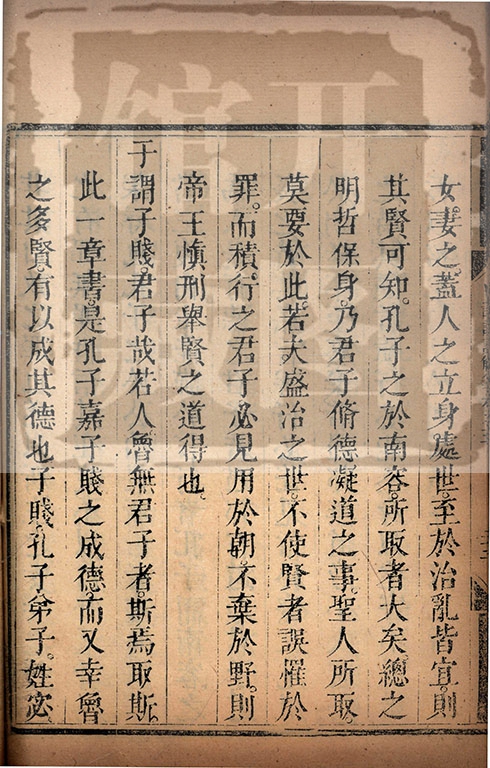 女妻之。蓋人之立身處世。至於治亂皆宜。則
其賢可知。孔子之於南容。所取者大矣。總之
明哲保身。乃君子脩德凝道之事。聖人所取
莫要於此。若大盛治之世。不使賢者誤罹於
罪。而積行之君子。必見用於朝。不棄於野。則
帝王慎刑舉賢之道得也。
子謂子賤。君子哉若人。魯無君子者。斯焉取斯。
此一章書。是孔子嘉子賤之成德。而又幸魯
之多賢。有以成其德也。子賤。孔子弟子。姓宓